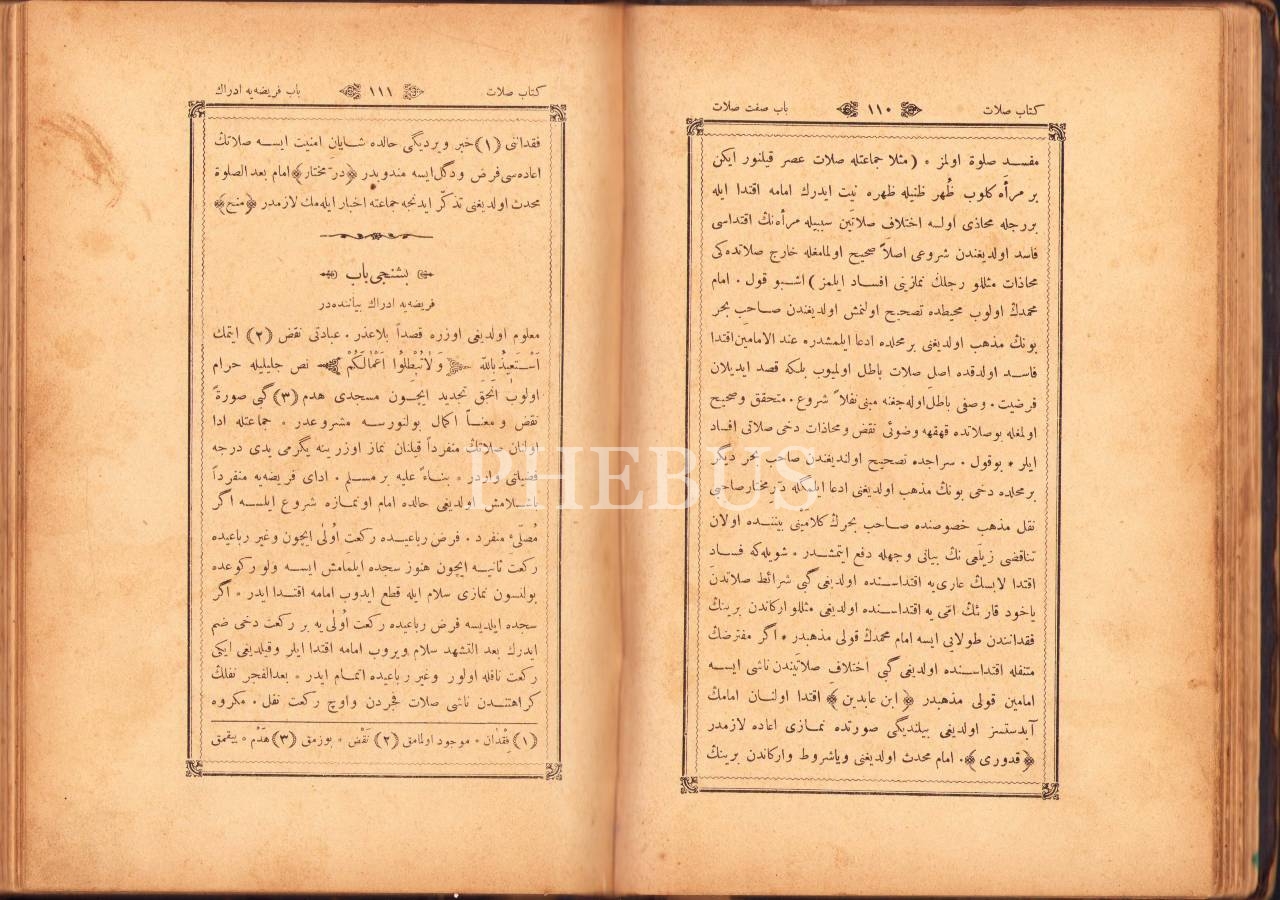 كتاب صلات ١١٠ باب صفت صلات
مفسد صلوة اولمز * (مثلا جماعتله صلات عصر قيلنور ايكن
بر مرأه كلوب ظُهر ظنيله ظهره نيت ايدرك امامه اقتدا ايله
بررجله محاذى اولسه اختلاف صلاتين سببيله مرأه‌نك اقتداسى
فاسد اولديغندن شروعى اصلاً صحيح اولمامغله خارج صلاتده‌كى
محاذات مثللو رجلك نمازينى افساد ايلمز) اشبو قول . امام
محمدك اولوب محيطده تصحيح اولنمش اولديغندن صاحب بحر
بونك مذهب اولديغنى برمحلده ادعا ايلمشدر * عند الامامين اقتدا
فاسد اولدقده اصل صلات باطل اولميوب بلكه قصد ايديلان
فرضيت . وصفى باطل اوله‌جغنه مبنى نفلاً شروع . متحقق وصحيح
اولمغله بوصلاتده قهقهه وضوئى نقض ومحاذات دخى صلاتى افساد
ايلر * بوقول . سراجده تصحيح اولنديغندن صاحب بحر ديكر
برمحلده دخى بونك مذهب اولديغنى ادعا ايلمكله درمختار صاحبى
نقل مذهب خصوصنده صاحب بحرك كلامينى بيننده اولان
تناقضى زيلعى نك بيانى وجهله دفع ايتمشدر * شويله‌كه فساد
اقتدا لابسك عارى‌يه اقتداسنده اولديغى كبى شرائط صلاتدن
ياخود قارئك امّى يه اقتداسنده اولديغى مثللو اركاندن برينك
فقدانندن طولايى ايسه امام محمدك قولى مذهبدر * اكر مفترضك
متنفله اقتداسنده اولديغى كبى اختلاف صلاتيندن ناشى ايسه
امامين قولى مذهبدر ﴿ابن عابدين﴾ اقتدا اولنان امامك
آبدستسز اولديغى بيلنديكى صورتده نمازى اعاده لازمدر
﴿قدورى﴾. امام محدث اولديغنى وياشروط واركاندن برينك
كتاب صلات ١١١ باب فريضه‌يه ادراك
فقداننى (١) خبر ويرديكى حالده شايان امنيت ايسه صلاتك
اعاده‌سى فرض ودكل ايسه مندوبدر ﴿درّ مختار﴾ امام بعد الصلوة
محدث اولديغنى تذكّر ايدنجه جماعته اخبار ايله‌مك لازمدر ﴿منح﴾
بشنجى باب
فريضه‌يه ادراك بياننده‌در
معلوم اولديغى اوزره قصداً بلاعذر . عبادتى نقض (٢) ايتمك
اَسْتَعِيذُ بِاللّٰه ﴿وَلَاتُبْطِلُوا اَعْمَالَكُمْ﴾ نص جليليله حرام
اولوب آنجق تجديد ايچون مسجدى هدم (٣) كبى صورةً
نقض ومعناً اكمال بولنورسه مشروعدر * جماعتله ادا
اولنان صلاتك منفرداً قيلنان نماز اوزرينه يكرمى يدى درجه
فضيلتى واردر * بناءً عليه بر مسلم . اداى فريضه‌يه منفرداً
باشلامش اولديغى حالده امام اونمازه شروع ايلسه اكر
مُصلّىٔ منفرد . فرض رباعيده ركعت اُولٰى ايچون وغير رباعيده
ركعت ثانيه ايچون هنوز سجده ايلمامش ايسه ولو ركوعده
بولنسون نمازى سلام ايله قطع ايدوب امامه اقتدا ايدر * اكر
سجده ايلديسه فرض رباعيده ركعت اُولٰى يه بر ركعت دخى ضم
ايدرك بعد التشهد سلام ويروب امامه اقتدا ايلر وقيلديغى ايكى
ركعت نافله اولور وغير رباعيده اتمام ايدر * بعد الفجر نفلك
كراهتندن ناشى صلات فجردن واوچ ركعت نفل . مكروه
(١) فِقْدان * موجود اولمامق (٢) نَقْض * بوزمق (٣) هَدْم * ييقمق
PHEBUS